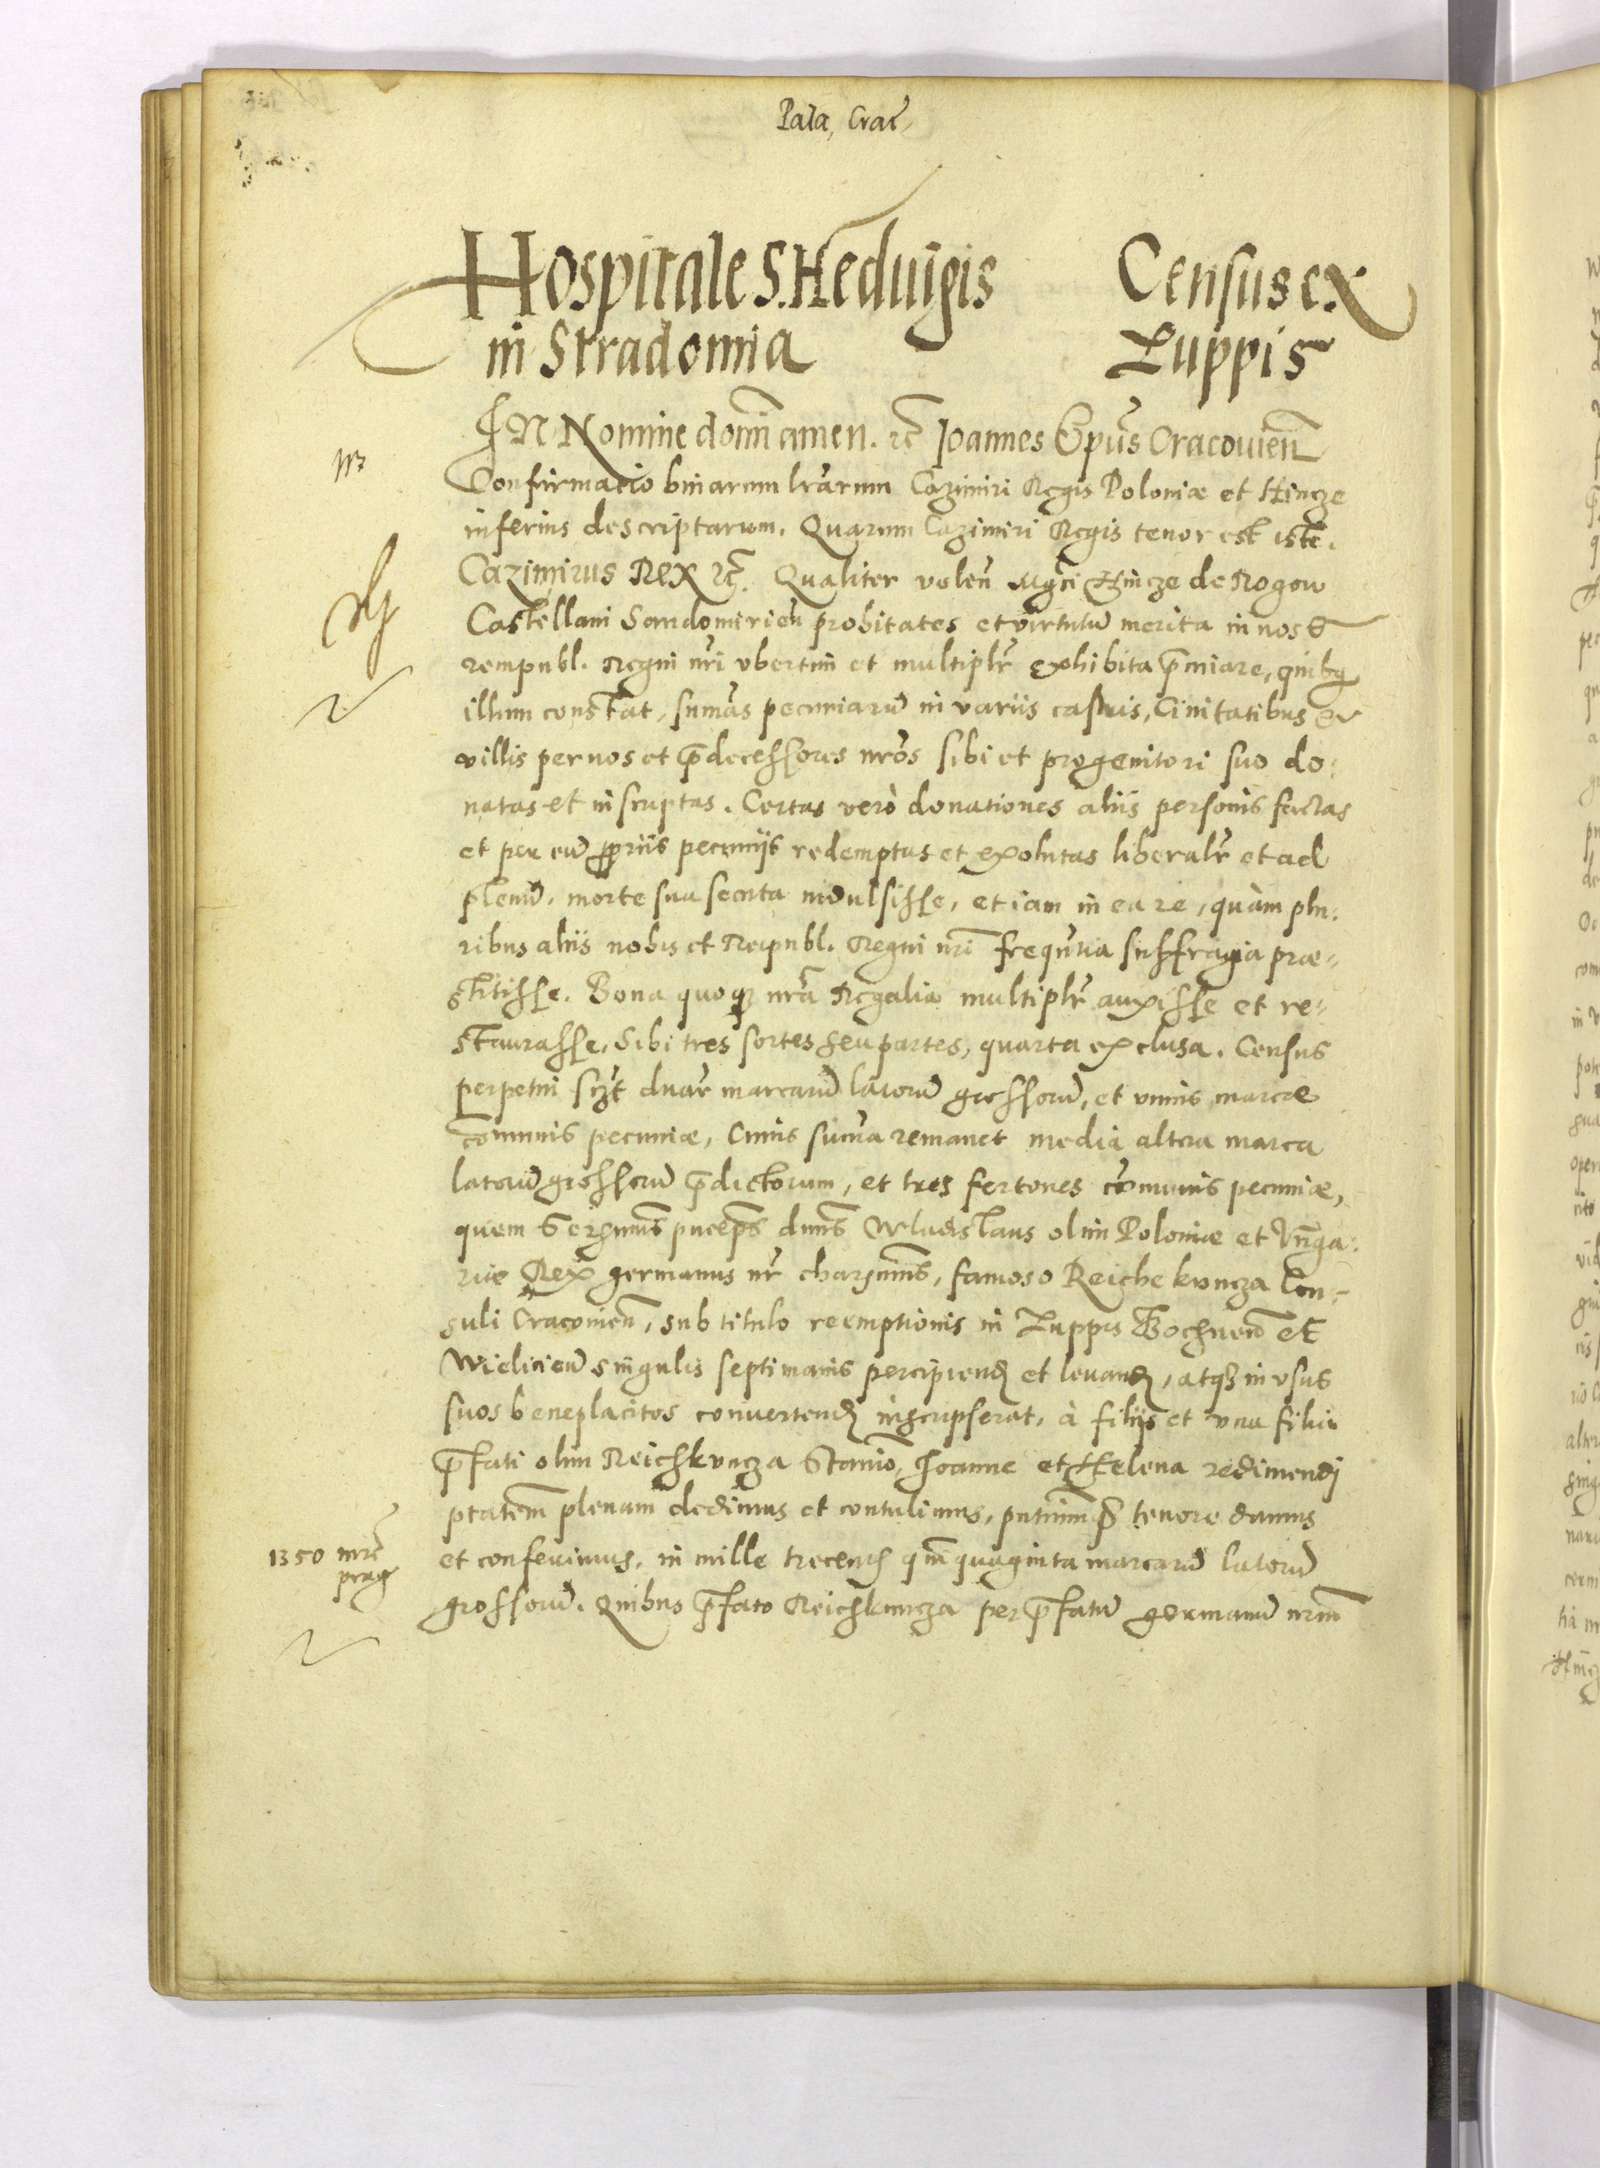 Pala, Crac
Hospitale S. Heduigis
in Stradomia
Census ex
Zuppis
IN Nomine domī amen. etc̄ Joannes Ep̄us Cracouień
Confirmatio binarum lr̄arum Cazimiri Regis Poloniæ et Hincze
inferius descriptarum. Quarum Cazimiri Regis tenor est iste.
Cazimirus Rex etc̄. Qualiter voleñ Mgc̄i Hincze de Rogow
Castellani Sandomirień probitates et virtutū merita in nos &
rempubl. Regni nr̄i vbertim et multiplr̄ exhibita p̄miare, quibq
illum constat, sum̄as pecuniarū in variis castris, Ciuitatibus &
villis per nos et p̄decessores nr̄os sibi et progenitori suo do:
natas et inscriptas. Certas verò donationes aliis personis factas
et per eū ꝓpriis pecuniis redemptas et exolutas liberalr̄ et ad
plenū, morte sua secuta indulsisse, et iam in ea re, quàm plu:
ribus aliis nobis et Reipubl. Regni nr̄i frequētia suffragia præ-
stitisse. Bona quoqꝫ nr̄a Regalia multiplr̄ auxisse et re-
staurasse, Sibi tres sortes seu partes, quarta exclusa. Census
perpetui sczt duar̄ marcarū latorū grossorū, et vnius marcæ
com̄unis pecuniæ, Cuius sum̄a remanet media altera marca
latorū grossorū p̄dictorum, et tres fertones com̄unis pecuniæ,
quem Sermus princeps dnūs Wladislaus olim Poloniæ et Vn̄ga:
riæ Rex germanus nr̄ charsimus, famoso Reichekuncza Con-
suli Cracouień, sub titulo reemptionis in Zuppis Bochneñ et
Wielicień singulis septimanis percipiend et leuand, atqꝫ in vsus
suos beneplacitos conuertend inscripserat, à filijs et vna filia
p̄fati olim Reichkuncza Stanisō, Joanne et Helena redimendi
ptātem plenam dedimus et contulimus, pntiumqꝫ tenore damus
et conferimus, in mille trecentis quinquaginta marcarū latorū
grossorū. Quibus p̄fato Reichkuncza per p̄fatū germanū nrūm
1350 mrc̄
prag